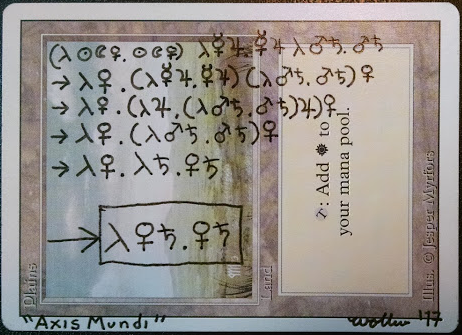 (λ☉☾♀.☉☾♀) λ☿♃.☿♃ λ♂♄.♂♄
→ λ♀.(λ☿♃.☿♃)(λ♂♄.♂♄)♀
→ λ♀.(λ♃.(λ♂♄.♂♄)♃)♀
→ λ♀.(λ♂♄.♂♄)♀
→ λ♀.λ♄.♀♄
→ λ♀♄.♀♄
Plains
Land
: Add ☀ to
your mana pool.
Illus. © Jesper Myrfors
"Axis Mundi"
'17